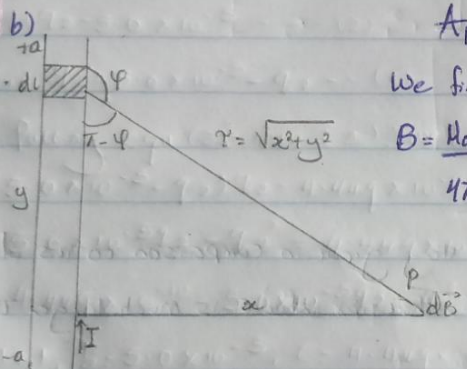 b)
+a
dl
φ
π-φ
r = √x²+y²
y
P
dB⃗
x
I
-a
A
We fi
B = μo
4π